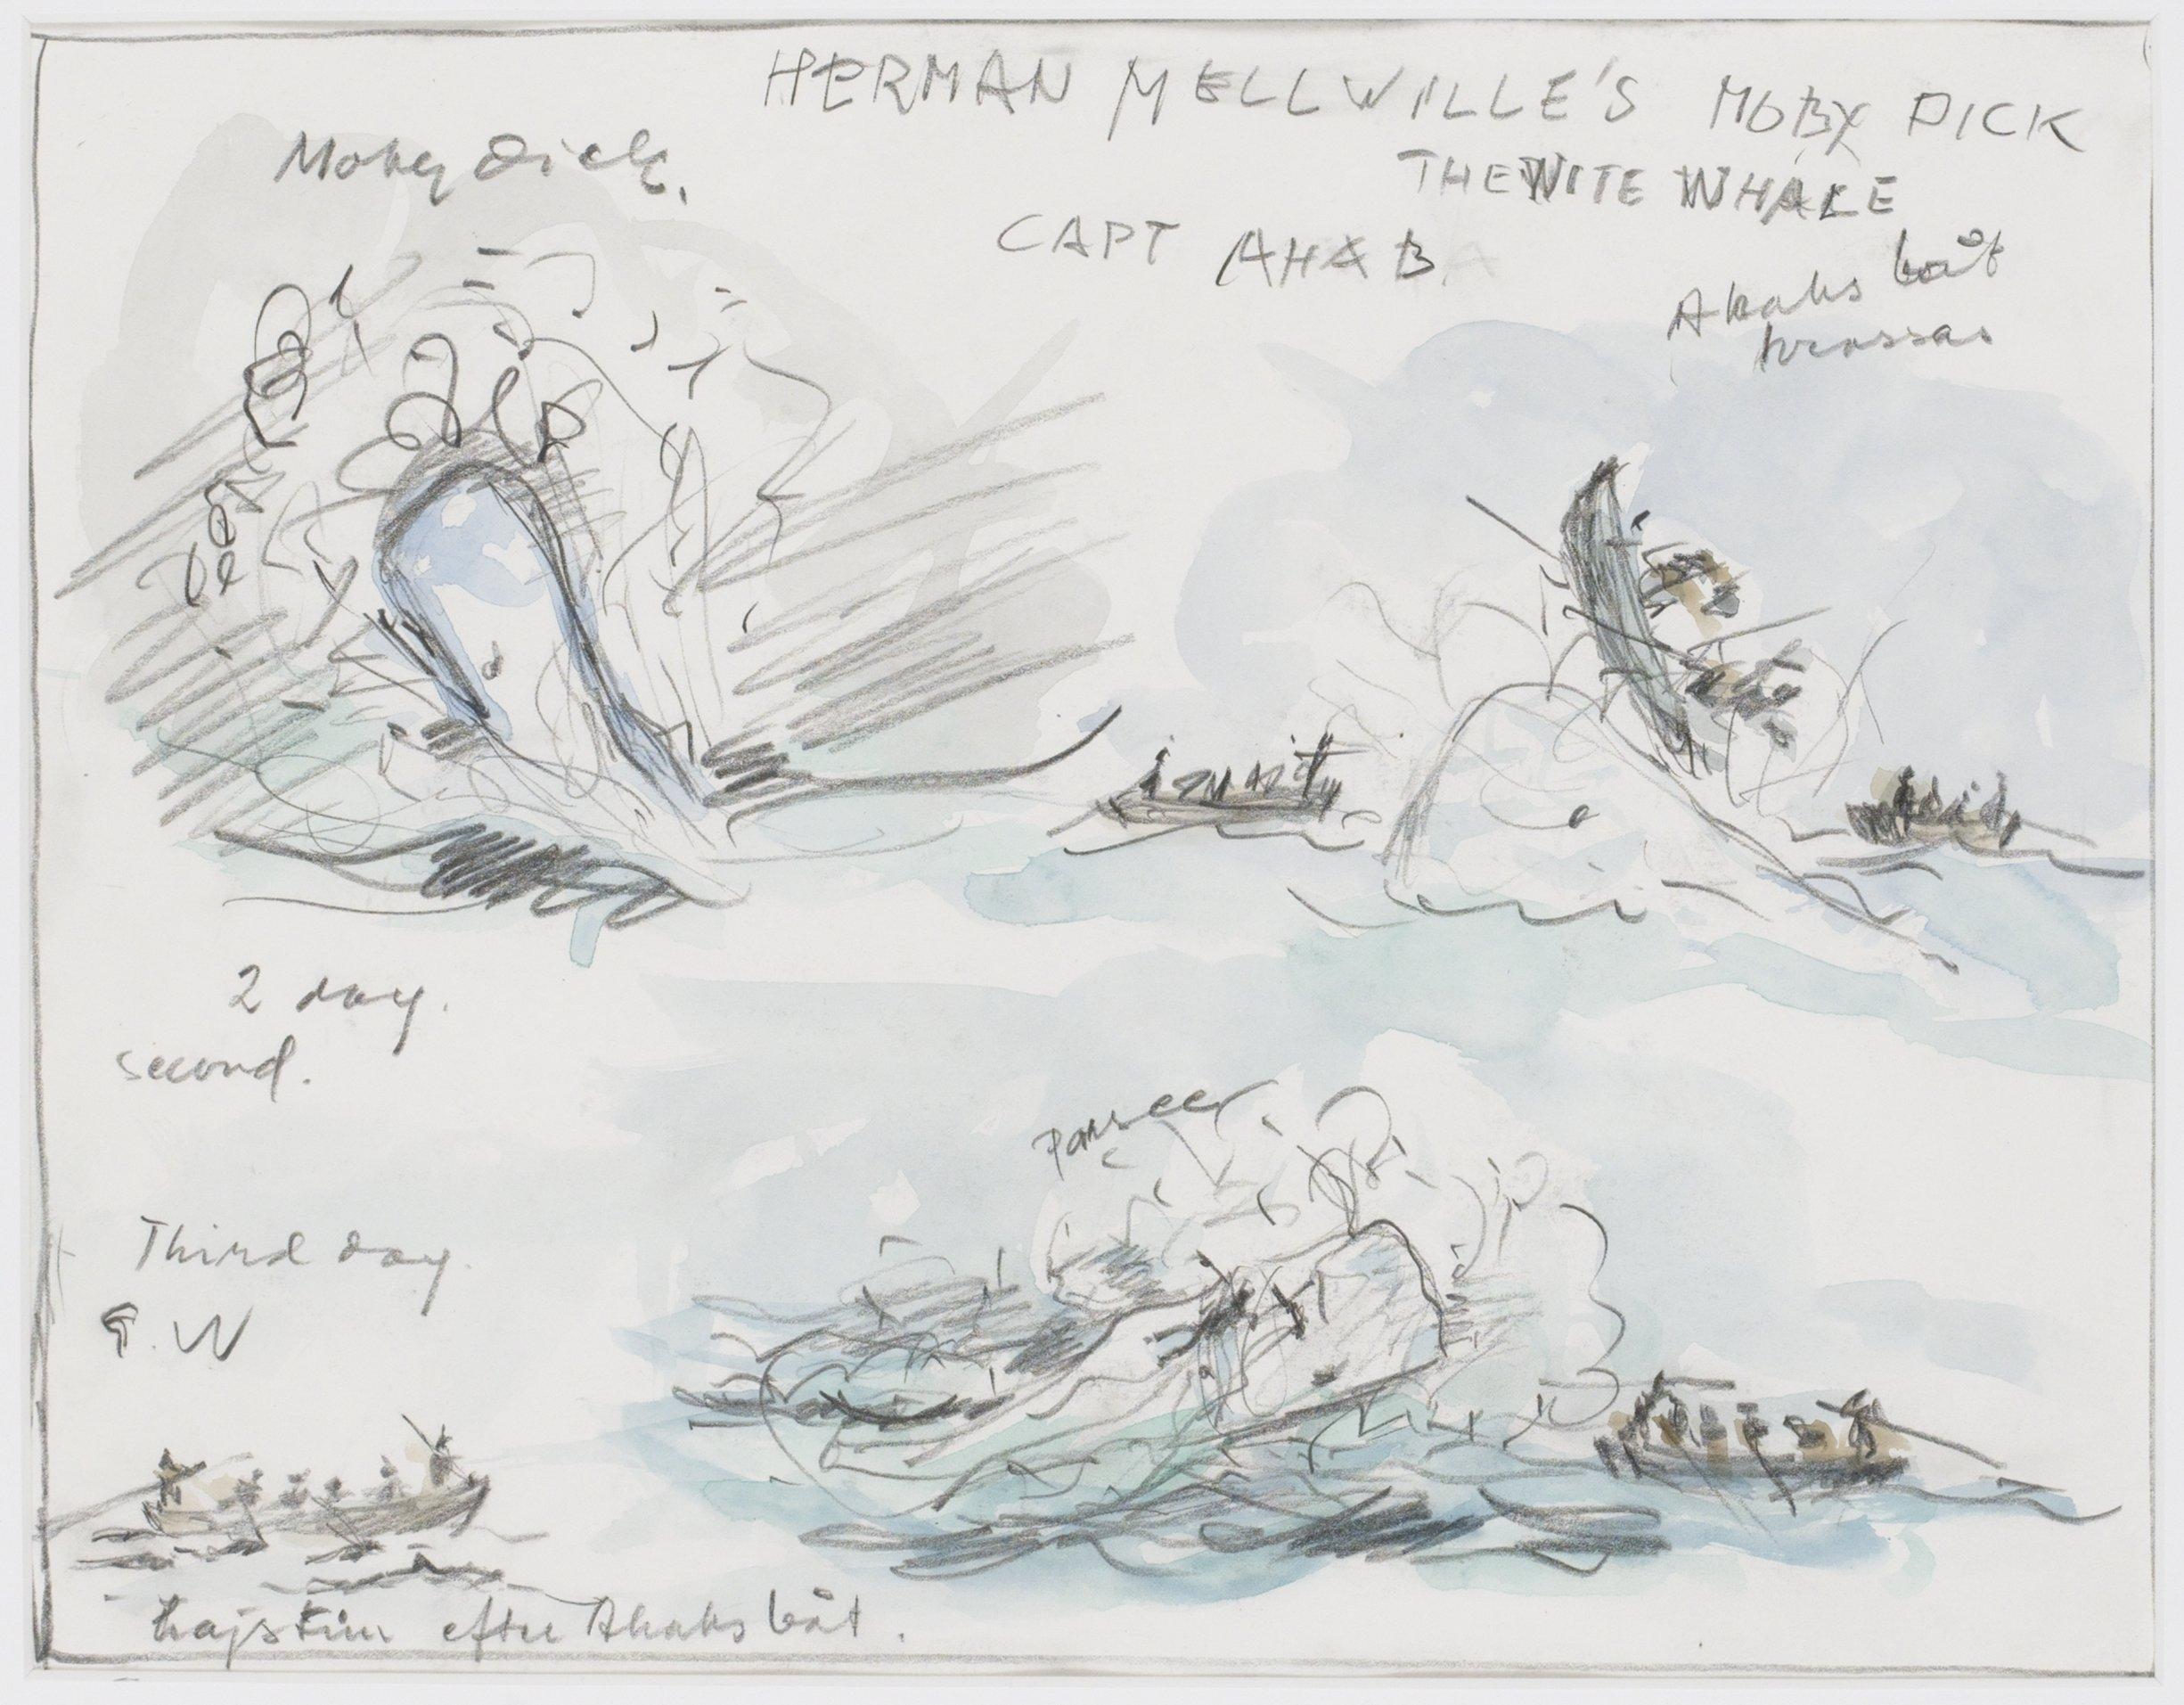 HERMAN MELLWILLE'S MOBY DICK
Moby Dick.
THE WITE WHALE
CAPT AHAB
Ahabs båt
krossas
2 day.
second.
Parsee
Third day.
G. W
hajstim efter Ahabs båt.